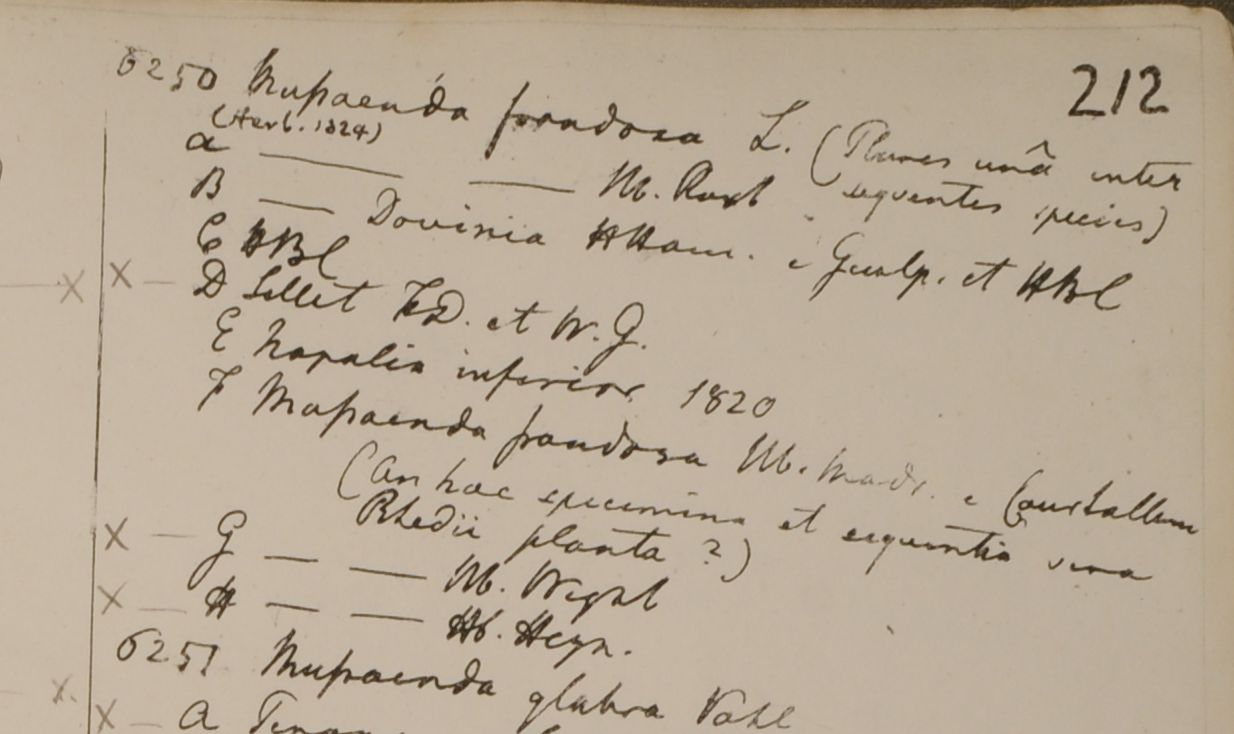 212
6250 Mussaenda frondosa L. (Plures unâ inter
(Herb. 1824) sequentes species)
a — — Hb. Roxb
B — Dovinia HHam. e Gualp. et HBC
C HBC
X — D Sillet FD. et W. G.
E Napalia inferior 1820
F Mussaenda frondosa Hb. Madr. e Courtallum
(An hac specimina et sequentia vera
Rhedii planta ?)
X — G — — Hb. Wight
X — H — — Hb. Heyn.
6251 Mussaenda glabra Vahl
X — a